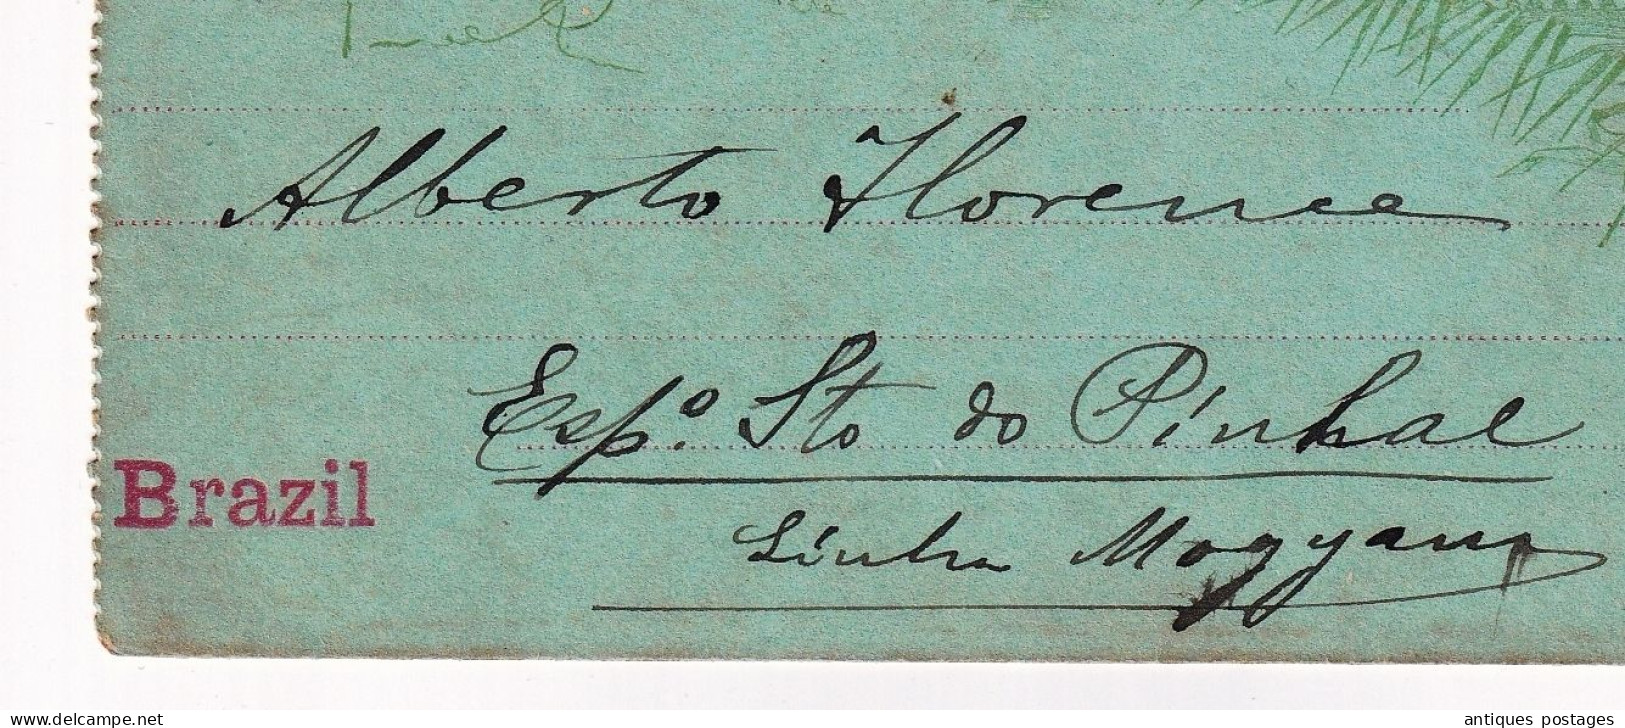 Alberto Florence
Espº. Sto do Pinhal
Linha Mogyana
Brazil
www.delcampe.net
antiques postages